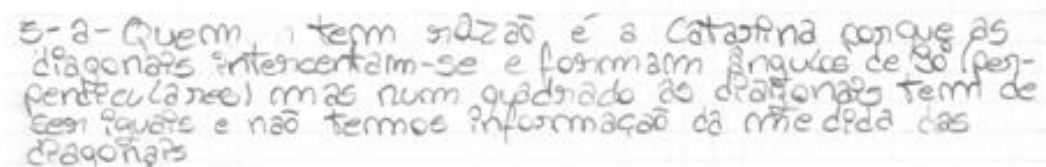 5-a-Quem tem razaõ é a Catarina porque as
diagonais intercentam-se e formam ângulos de 90 (per-
pendiculares) mas num quadrado as diagonais tem de
ser iguais e naõ termos informaçaõ da medida das
diagonais